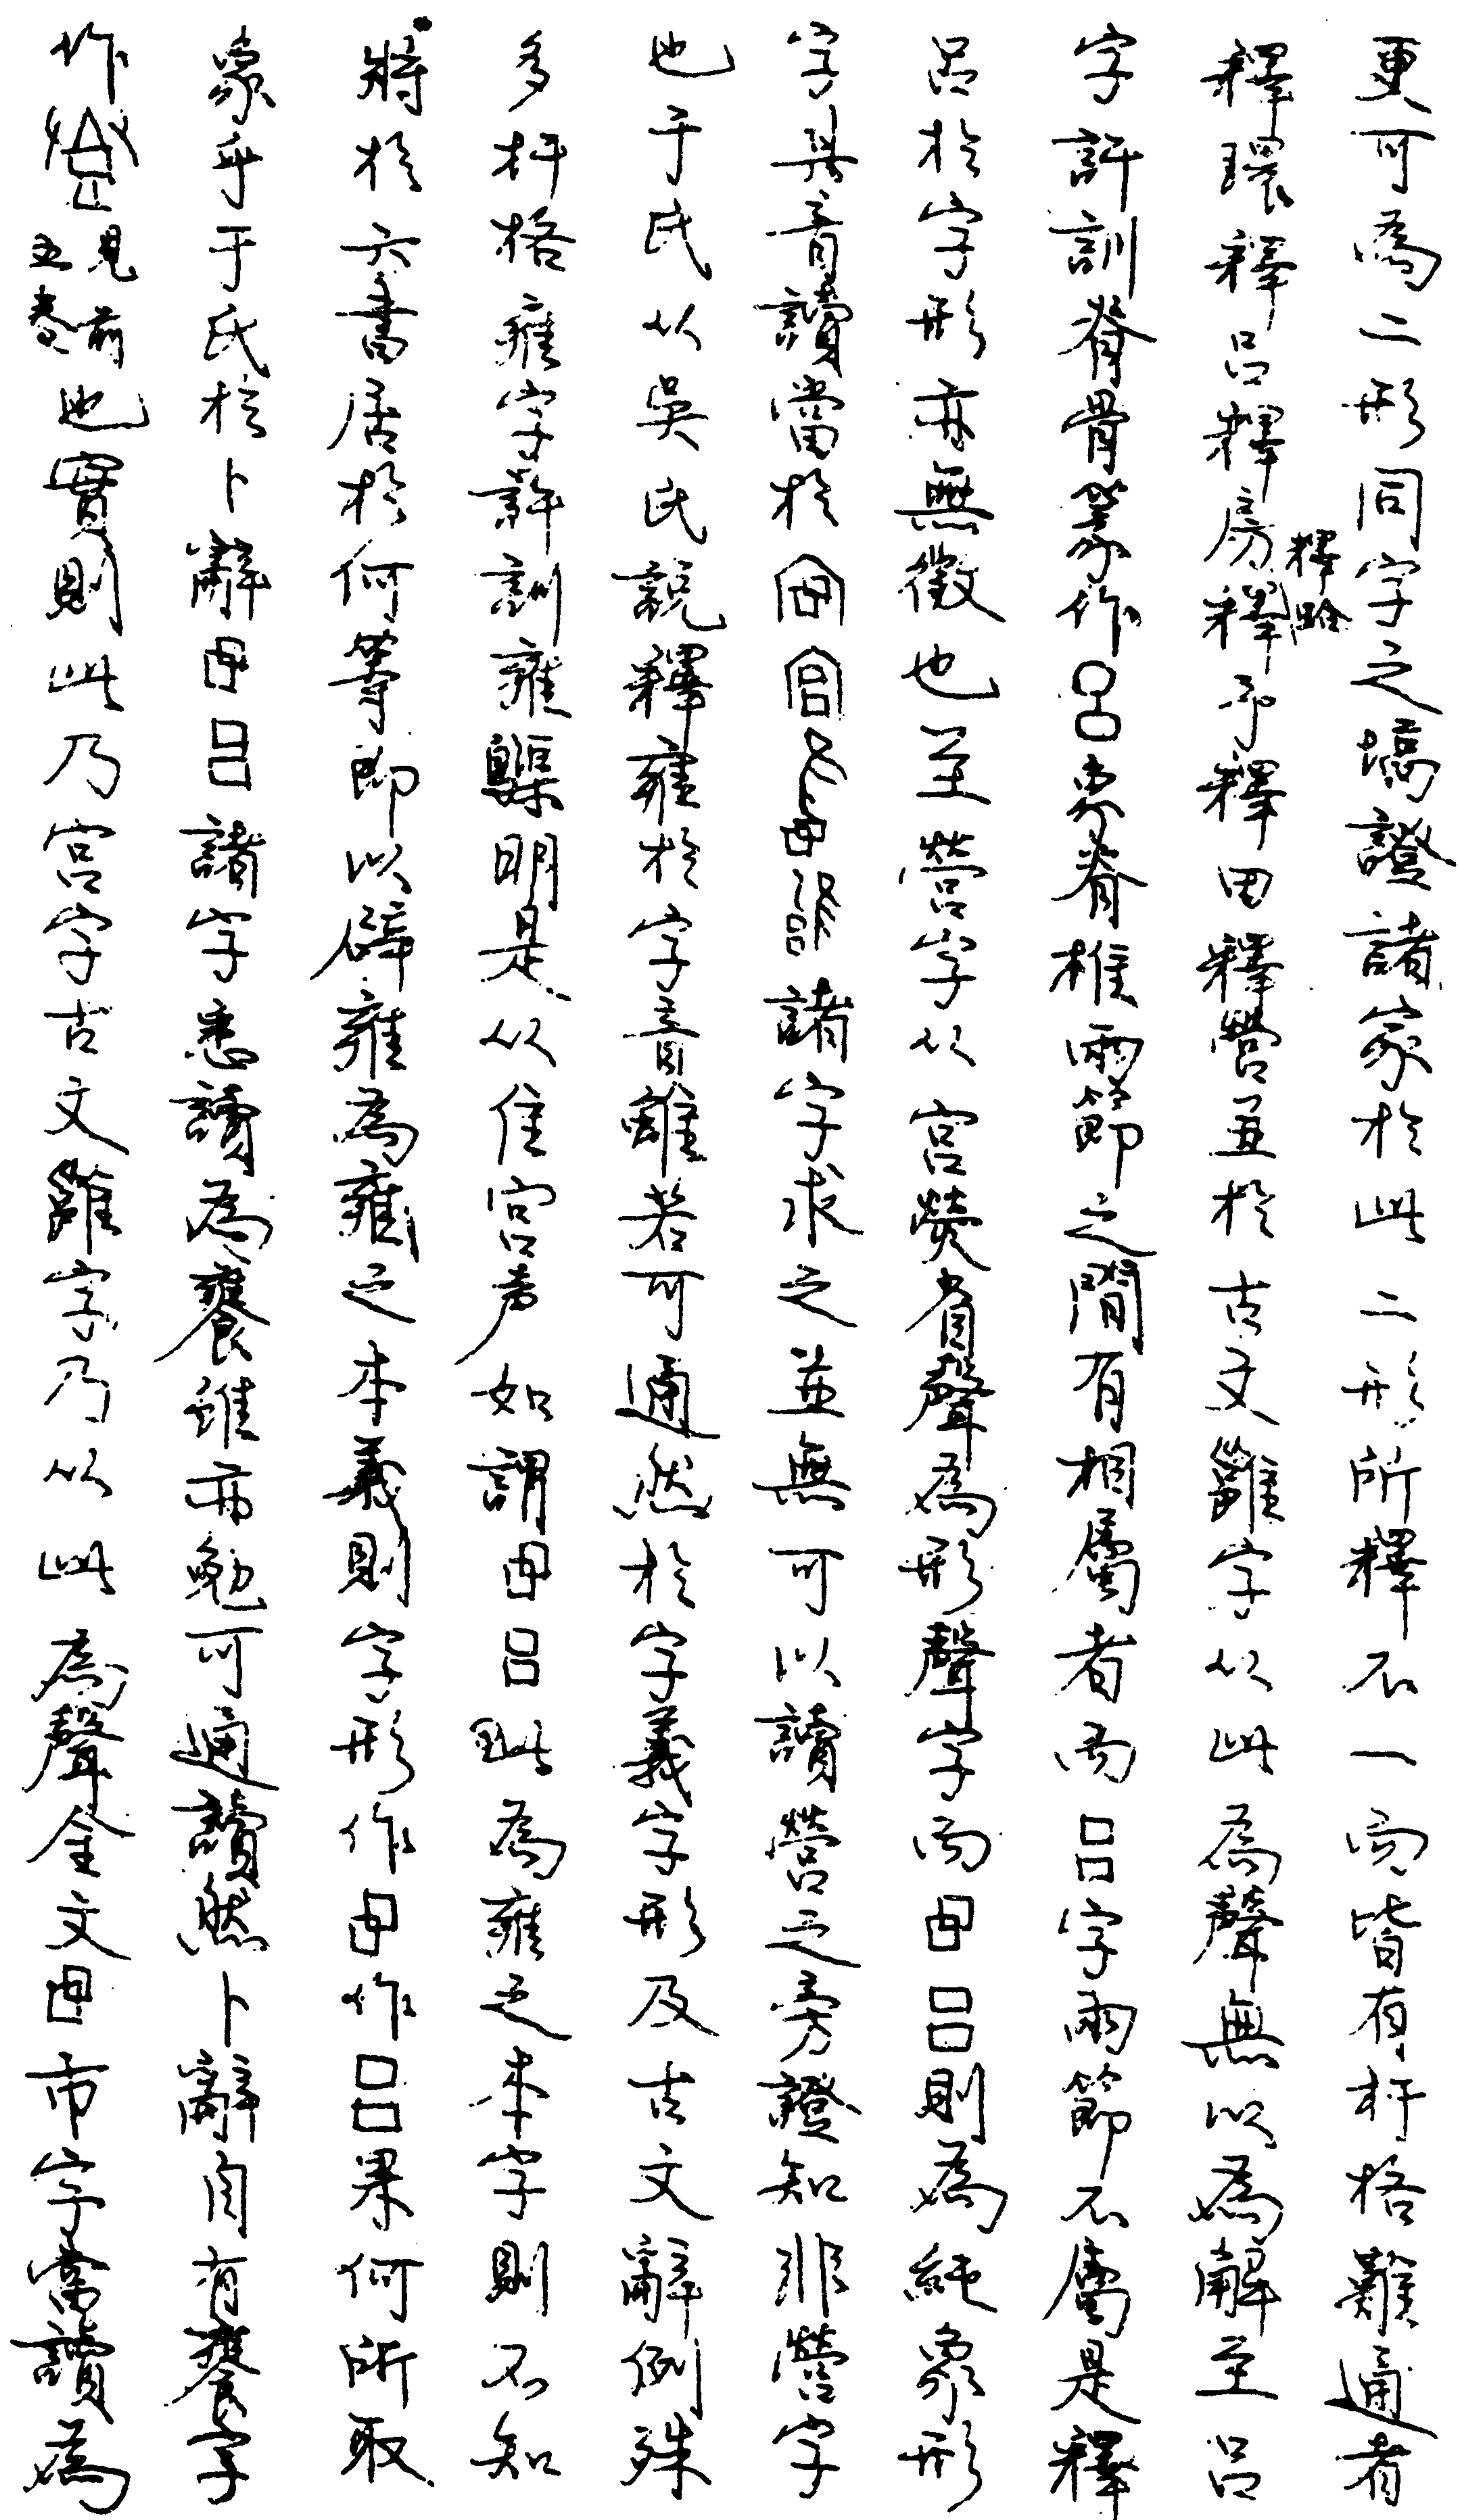 更可為二形同字之塙證諸家於此二形所釋不一而皆有扞格難通者
釋環釋呂釋房釋蛤釋予釋田釋營並於古文雝字从此為聲無以為解至呂
字許訓脊骨篆作呂象脊椎兩節之間有相屬者而呂字兩節不屬是釋
呂於字形亦無徵也至營字从宮熒省聲為形聲字而吕則為純象形
字其音讀當於諸字求之並無可以讀營之旁證知非營字
也于氏从吳氏說釋雍於字音雖若可通然於字義字形及古文辭例殊
多扞格雍字許訓雍𪆫明是从隹宮声如謂吕此為雍之本字則不知
將於六書居於何等即以辟雍為雍之本義則字形作作吕果何所取
象乎于氏於卜辭吕諸字悉讀為饔雖亦勉可通讀然卜辭自有饔字
作見前五卷也實則此乃宮字古文雝字乃以此為聲金文市字當讀為